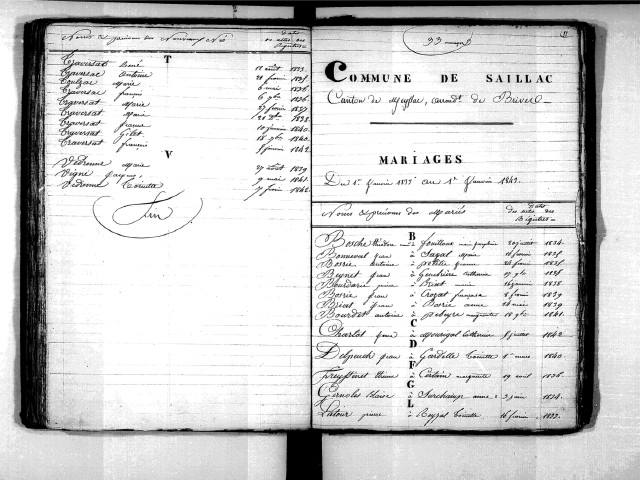 Noms et prénoms des Nouveaux Nés
Dates des actes des Registres
T
Traversat 11 août 1833.
Traversac Antoine 21 février 1835
Toulzac Marie 6 mai 1836
Traversac françois 6 9bre 1836.
Traversat Marie 27 février 1837
Traversat Marie 1838
Traversat femme 10 1840.
Traversat Gilet 18 9bre 1840.
Traversat françois 8 février 1842
V
Vedrenne Marie 27 août 1839
Vigne Jacques 9 mai 1841.
Vedrenne Toinette 7 février 1842
fin
33 mariages
11
COMMUNE DE SAILLAC
Canton de Meyssac, arrondt. de Brives
MARIAGES
Du 1er Janvier 1833 au 1er Janvier 1843.
Noms et prénoms des Mariés
Dates des actes des Registres
B
Bosche théodore à Jouillous marie josephine 20 juillet 1834.
Bonneval jean à Sazal Marie 11 février 1835
Bosrie antoine à petitie 24 février 1835
Beynet jean à Genebrière Catherine 17 9bre 1838
Bourdarie pierre à Briat marie 16 janvier 1838
Bosrie jean à Crozat françoise 8 février 1839
Briat jean à Bosrie anne 24 mai 1839
Bourdet antoine à pebeyre marguerite 18 9bre 1841.
C
Charlat à Mourigal Catherine 8 juillet 1842
D
Delpeuch jean à Gardelle Toinette 1er mars 1840
F
Freyssinet Etienne à Certain marguerite 19 avril 1836
G
Gernoles blaise à Surchamp anne 3 juin 1834.
L
Latour pierre à Reyzat Toinette 16 février 1833.